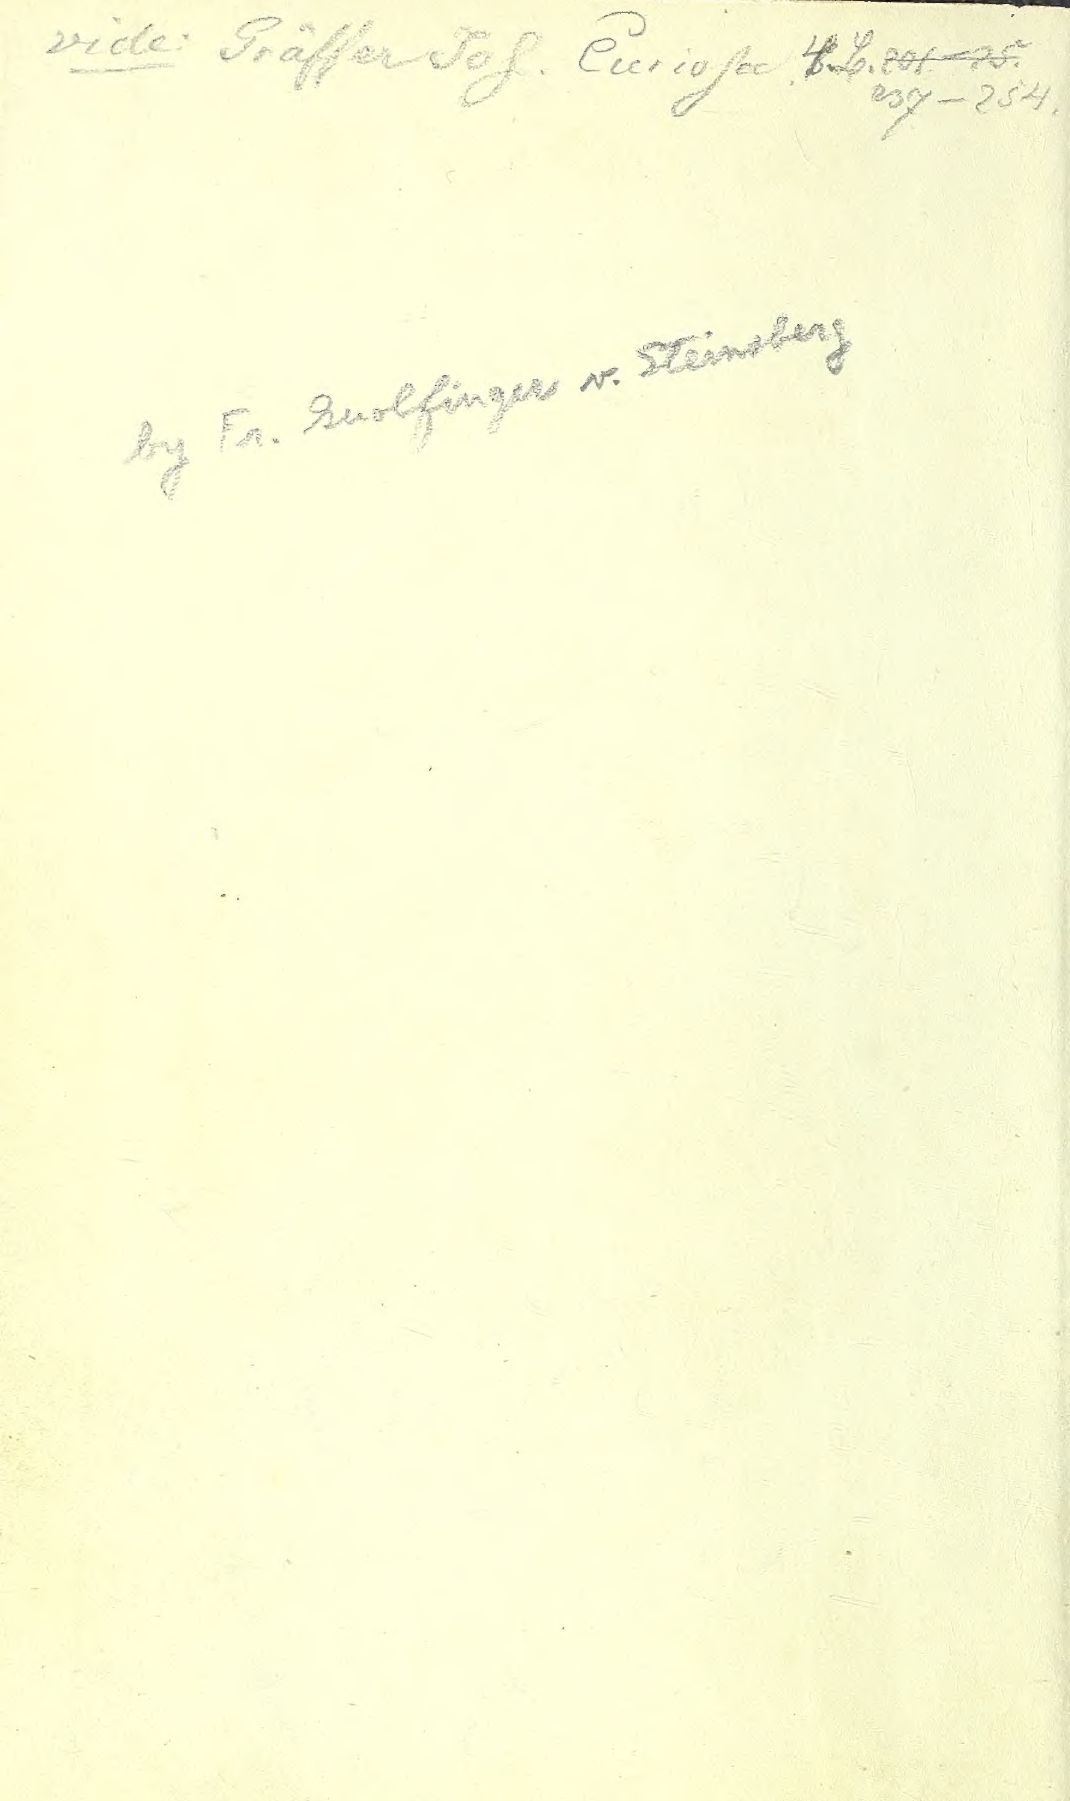 vide: Gräffer Jos. Curiosa 201-75.
237-254.
by Fr. Guolfinger v. Steinsberg